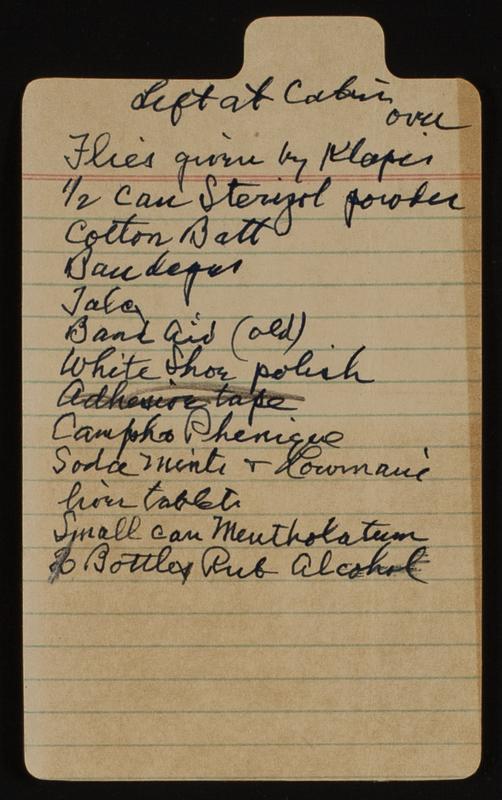 Left at Cabin
over
Flies given by Klapis
1/2 Can Sterizol powder
Cotton Batt
Bandages
Talc
Band Aid (old)
White Shoe polish
Adhesive tape
Campho Phenique
Soda Mints +
liver tablets
Small can Mentholatum
Bottles Rub Alcohol